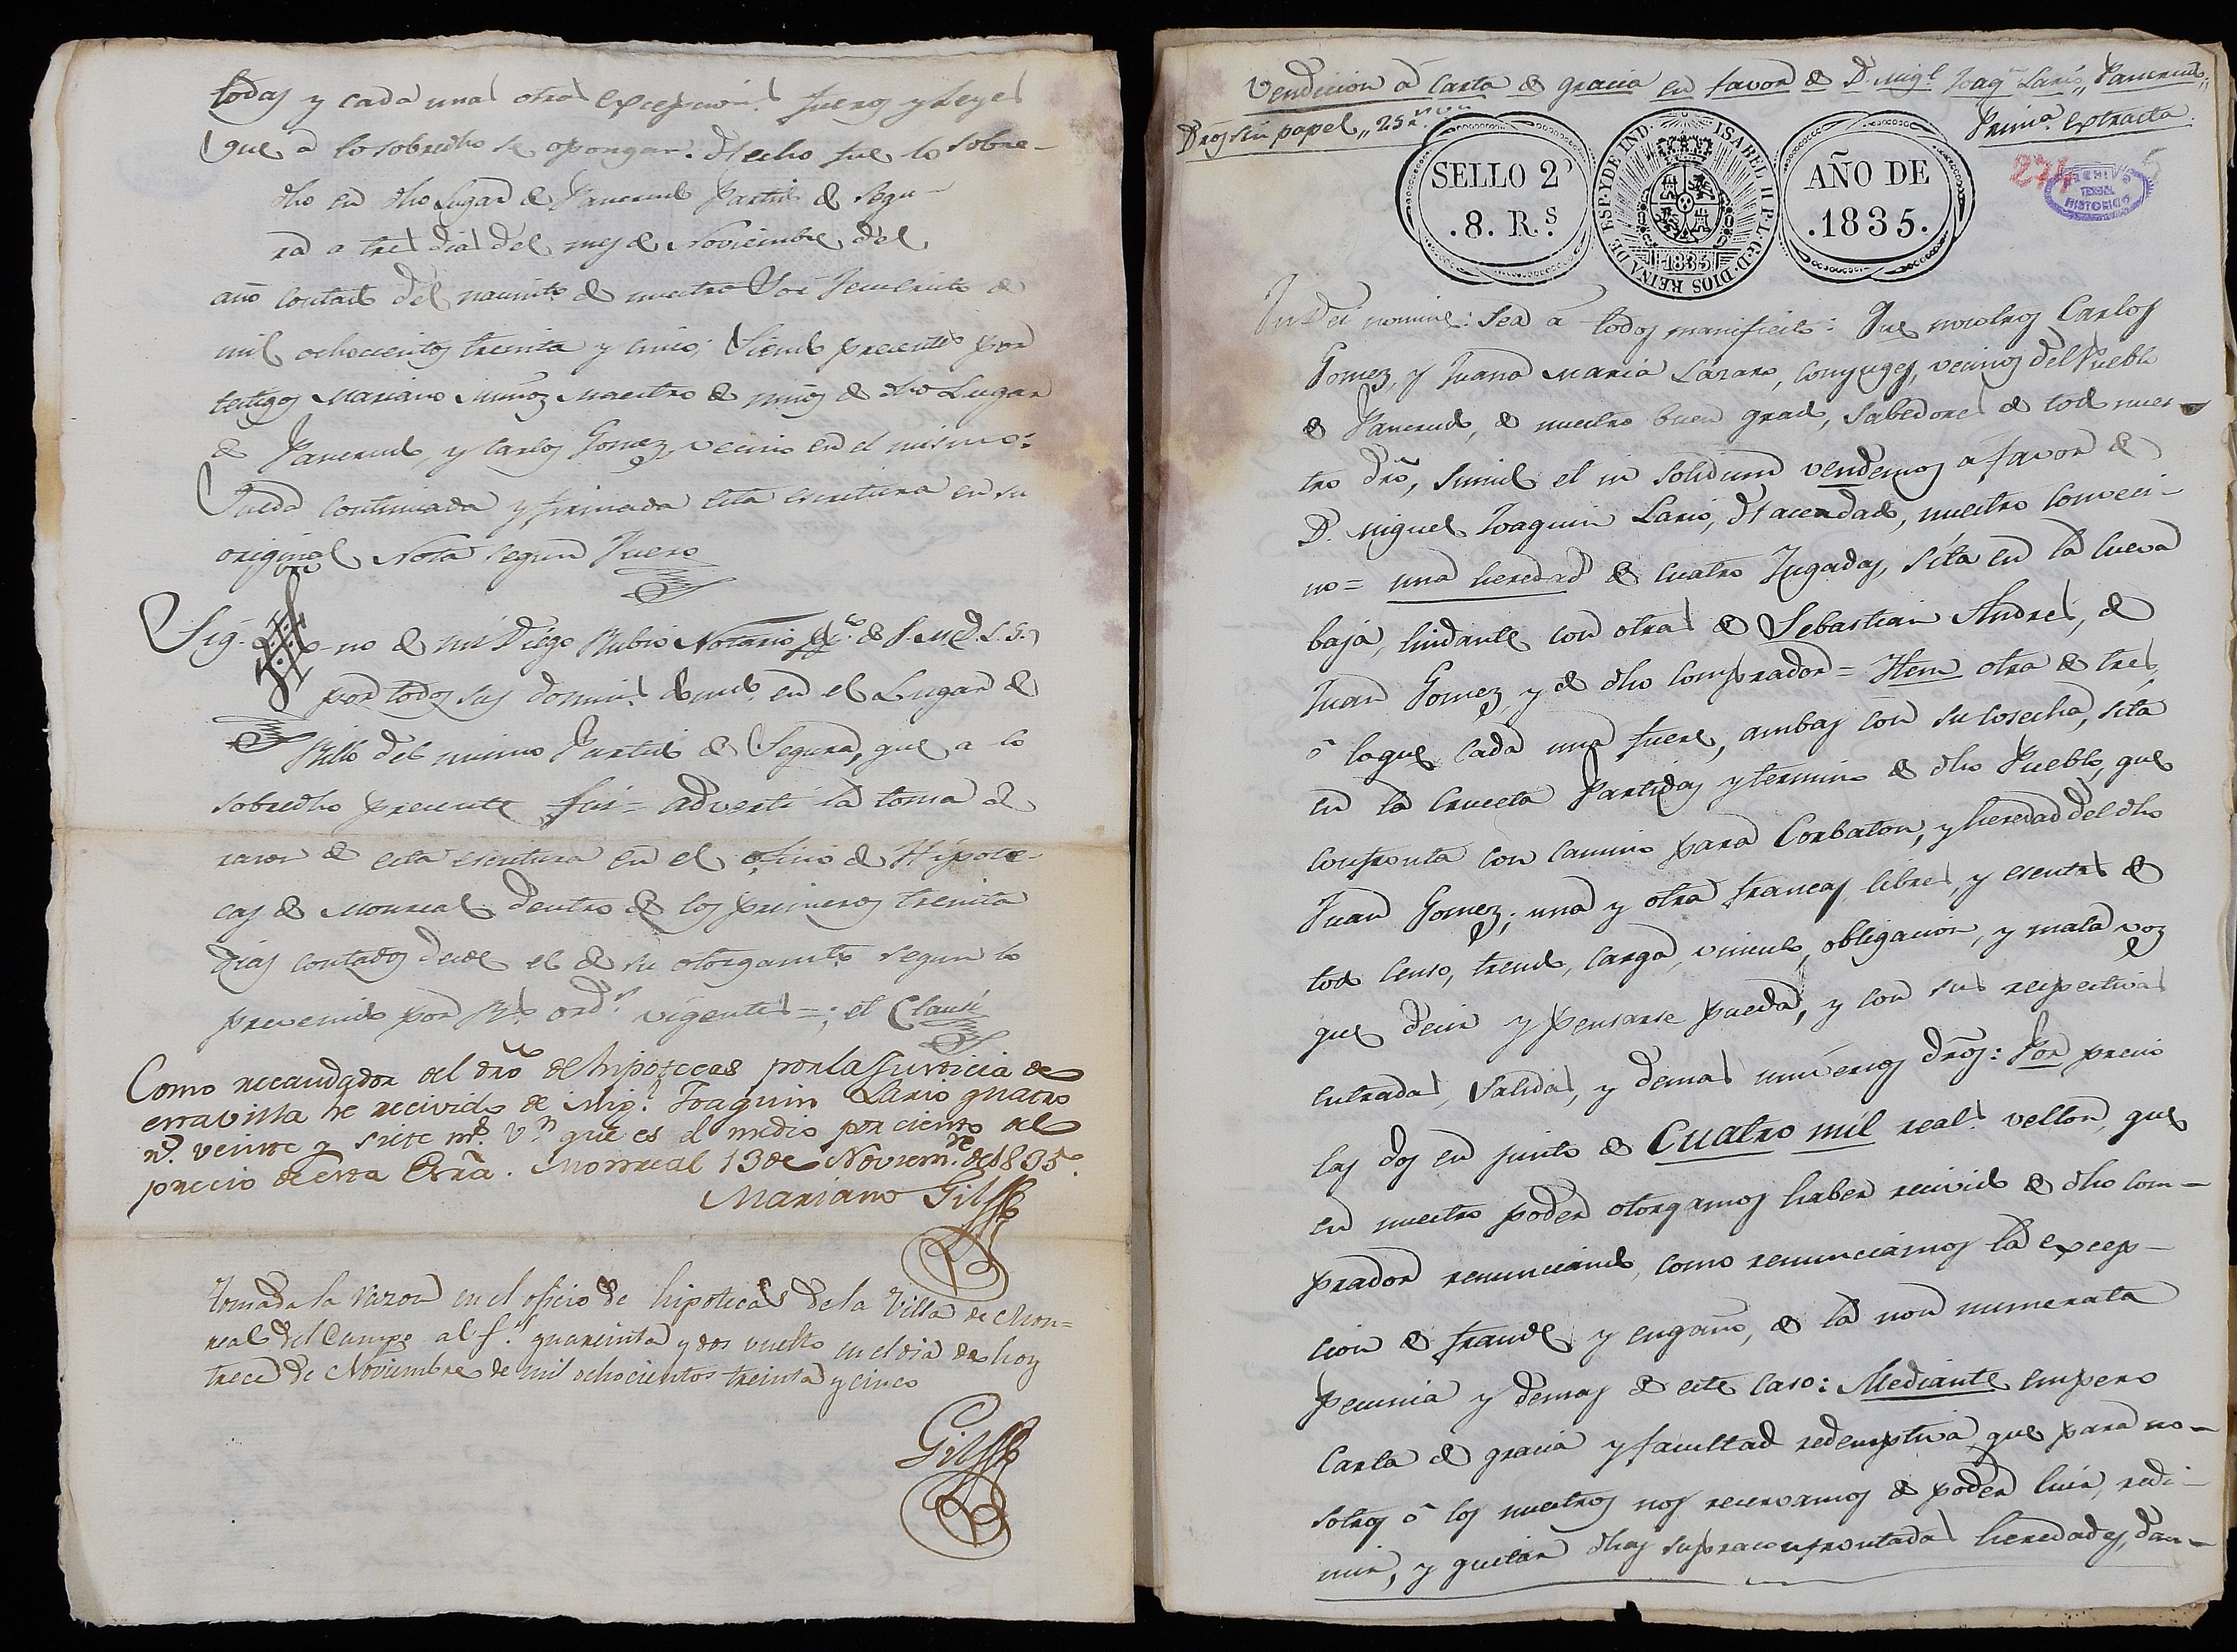 todas y cada unas otras excepcion.s fueros y Leyes
que a lo sobredho se opongan. Hecho fue lo sobre-
dho en dho Lugar de Pancrudo Partido de Segu-
ra a tres dias del mes de Noviembre del
año contado del nacimto. de nuestro Sor Jesucristo de
mil ochocientos treinta y cinco; siendo presentes por
testigos Mariano Muñoz Maestro de niños de dho Lugar
de Pancrudo, y Carlos Gomez vecino en el mismo:
Queda continuada y firmada esta escritura en su
original Nota segun Fuero
Sig-no de mi Diego Rubio Notario de S. M.
por todos sus domin.s domdo. en el Lugar de
Rillo del mismo Partido de Segura, que a lo
sobredho presente fui = advertí la toma de
razon de esta escritura en el oficio de Hipote-
cas de Monreal dentro de los primeros treinta
dias contados desde el de su otorgamto. segun lo
prevenido por Rs. ords. vigentes =; et Clausi
Como recaudador del dro de hipotecas por la Justicia de
esta villa he recivido de Migl. Joaquin Lario quatro
rs. veinte y siete ms. vn. que es el medio por ciento del
precio de esta Esra. Monreal 13 de Noviembre de 1835.
Mariano Gil
Tomada la razon en el oficio de hipotecas de la Villa de Mon=
real del Campo al f.o quareinta y dos vuelto en el dia de hoy
trece de Noviembre de mil ochocientos treinta y cinco
Gil
Vendicion á Carta de gracia en favor de D. Migl. Joaqn Lario,, Pancrudo,,
Dros sin papel,, 25 rs. vn.
Prima. extracta
SELLO 2º
.8. R.S
ISABEL II P. L. G. D. DIOS REINA DE ESP. Y DE IND.
1835
AÑO DE
.1835.
274
5
ARCHIVO
TERUEL
HISTORICO
In Dei nomine: Sea á todos manifiesto: Que nosotros Carlos
Gomez, y Juana Maria Lazaro, conyuges, vecinos del Pueblo
de Pancrudo, de nuestro buen grado, sabedores de todo nues-
tro dro, simul et in solidum vendemos a favor de
D. Miguel Joaquin Lario, Hacendado, nuestro conveci-
no = una heredad de cuatro Jugadas, sita en la Cueva
baja, lindante con otras de Sebastian Andres, de
Juan Gomez, y de dho comprador = Item otra de tres,
ó loque cada una fuere, ambas con su cosecha, sita
en la Cruceta Partidas y termino de dho Pueblo, que
confronta con camino para Corbaton, y heredad del dho
Juan Gomez; una y otra francas, libres, y esentas de
todo censo, treudo, carga, vinculo, obligacion, y mala voz
que decir y pensarse pueda, y con sus respectivas
entradas, salidas, y demas universos dros: Por precio
las dos en junto de Cuatro mil reals. vellon, que
en nuestro poder otorgamos haber recivido de dho com-
prador renunciando, como renunciamos la excep-
cion de fraude y engaño, de la non numerata
pecunia y demas de este caso: Mediante empero
Carta de gracia y facultad redemptiva que para no-
sotros ó los nuestros nos reservamos de poder luir, redi-
mir, y quitar dhas supraconfrontadas heredades, dan-